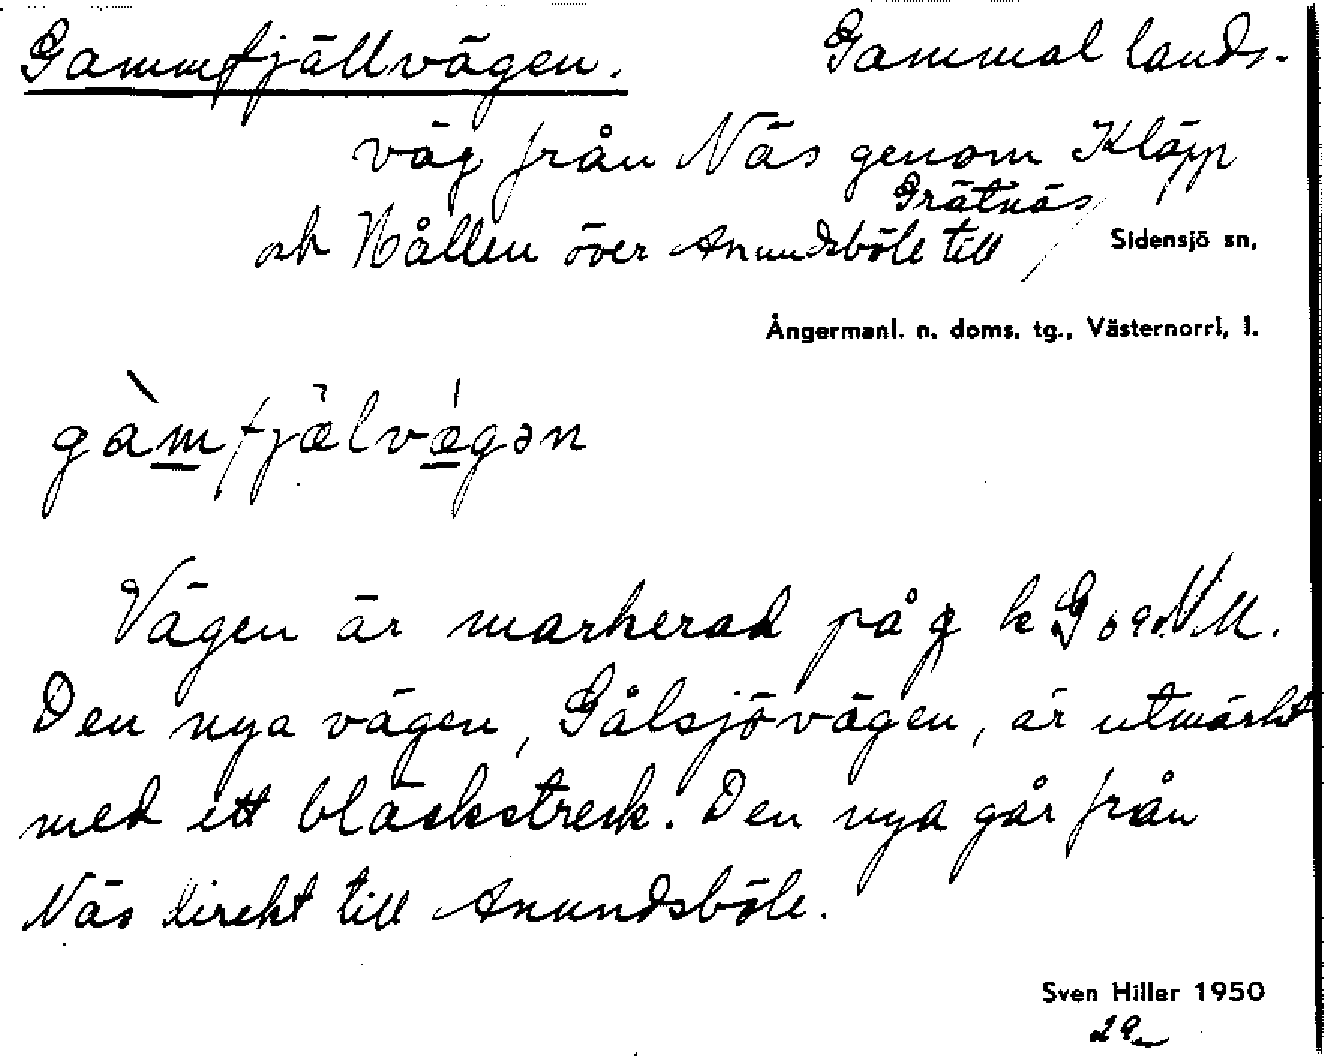 Gammfjällvägen. Gammal lands-
väg från Näs genom Kläpp
och Hållen över Anundsböle till Grätnäs
Sidensjö sn,
Ångermanl. n. doms. tg., Västernorrl, l.
gàmfjälvägən
Vägen är markerad på g k G o NM.
Den nya vägen, Gålsjövägen, är utmärkt
med ett bläckstreck. Den nya går från
Näs direkt till Anundsböle.
Sven Hiller 1950
29